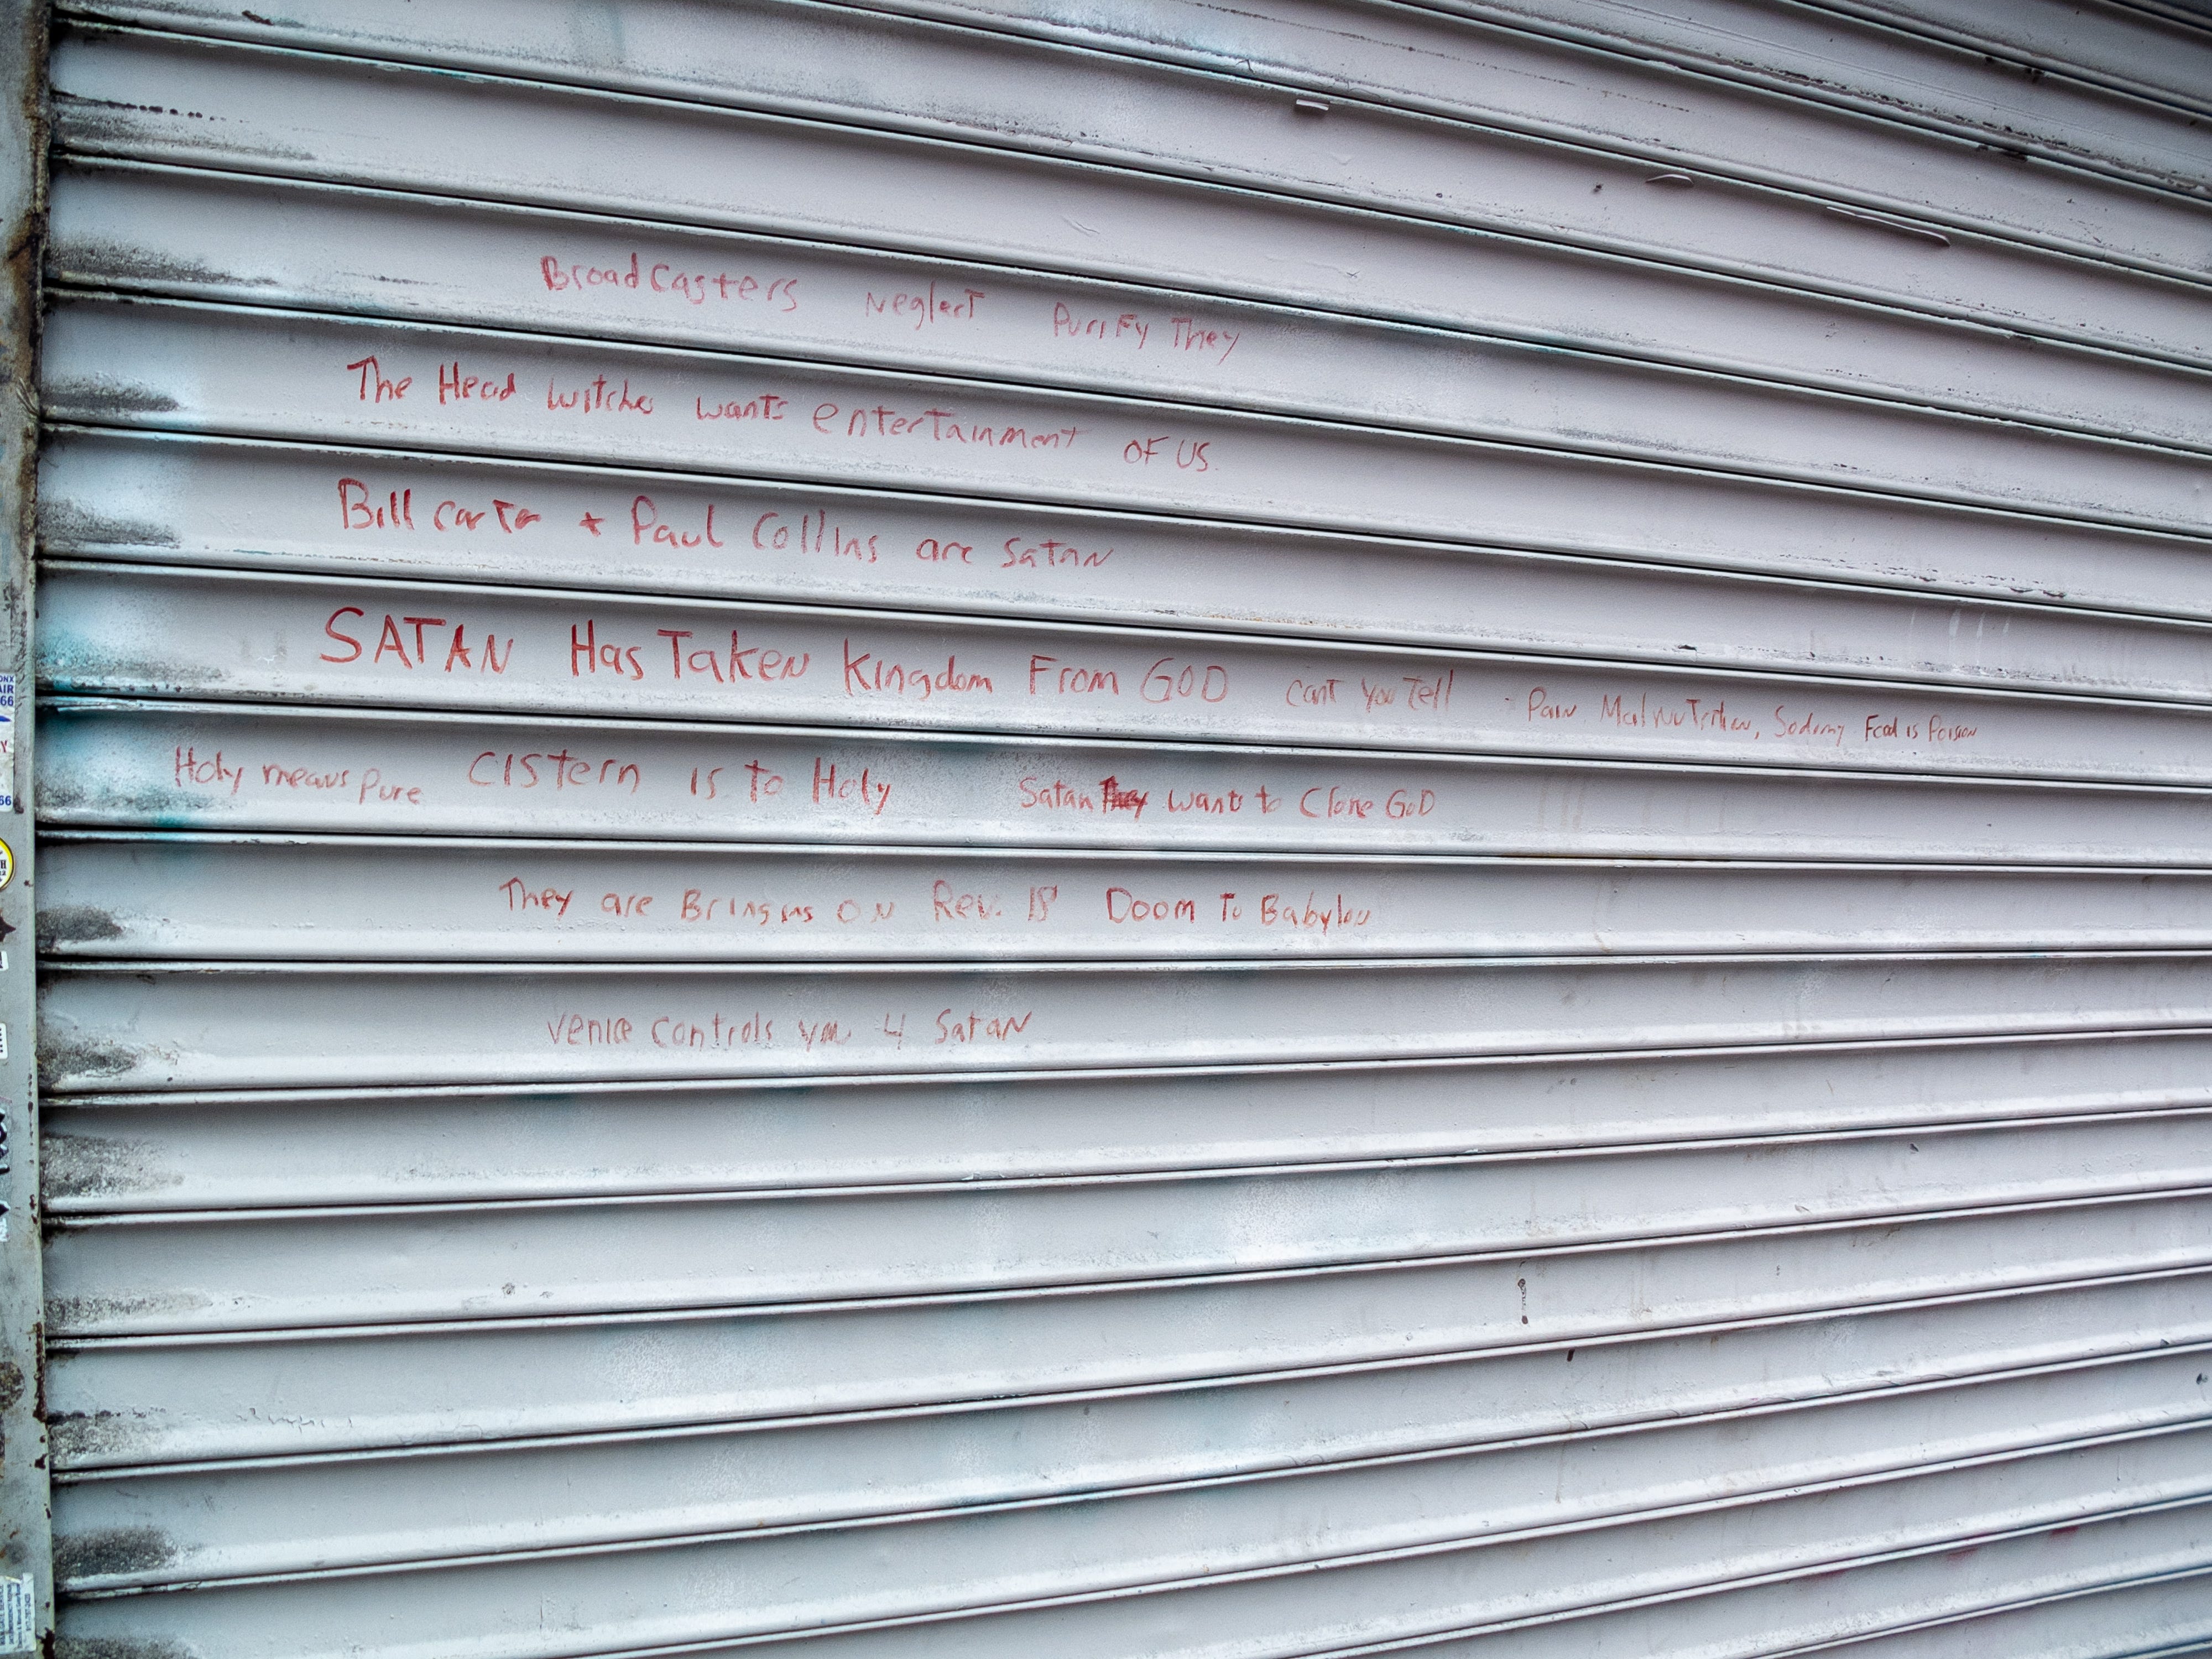 BroadCasters Neglect Purify They
The Head witches wants entertainment OF US.
Bill carter + Paul Collins are Satan
SATAN Has Taken Kingdom From GOD cant You Tell - Pain Malnutrition, Sodomy Food is Poison
Holy means Pure CISTern is to Holy Satan They wants to Clone GOD
They are Bringing ON Rev. 18 Doom To Babylon
Venice controls you 4 Satan